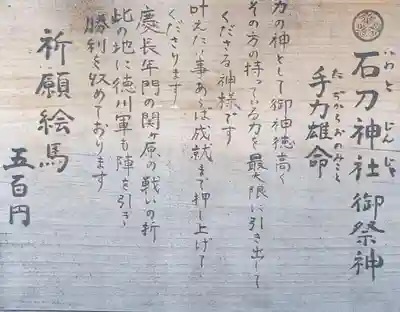 石刀神社御祭神
いわと じんじゃ
手力雄命
たぢからおのみこと
力の神として御神徳高く
その方の持っている力を最大限に引き出して
くださる神様です
叶えたい事あらば成就まで押し上げて
くださります
慶長年間の関ヶ原の戦いの折
此の地に徳川軍も陣を引き
勝利を収めております
祈願絵馬
五百円